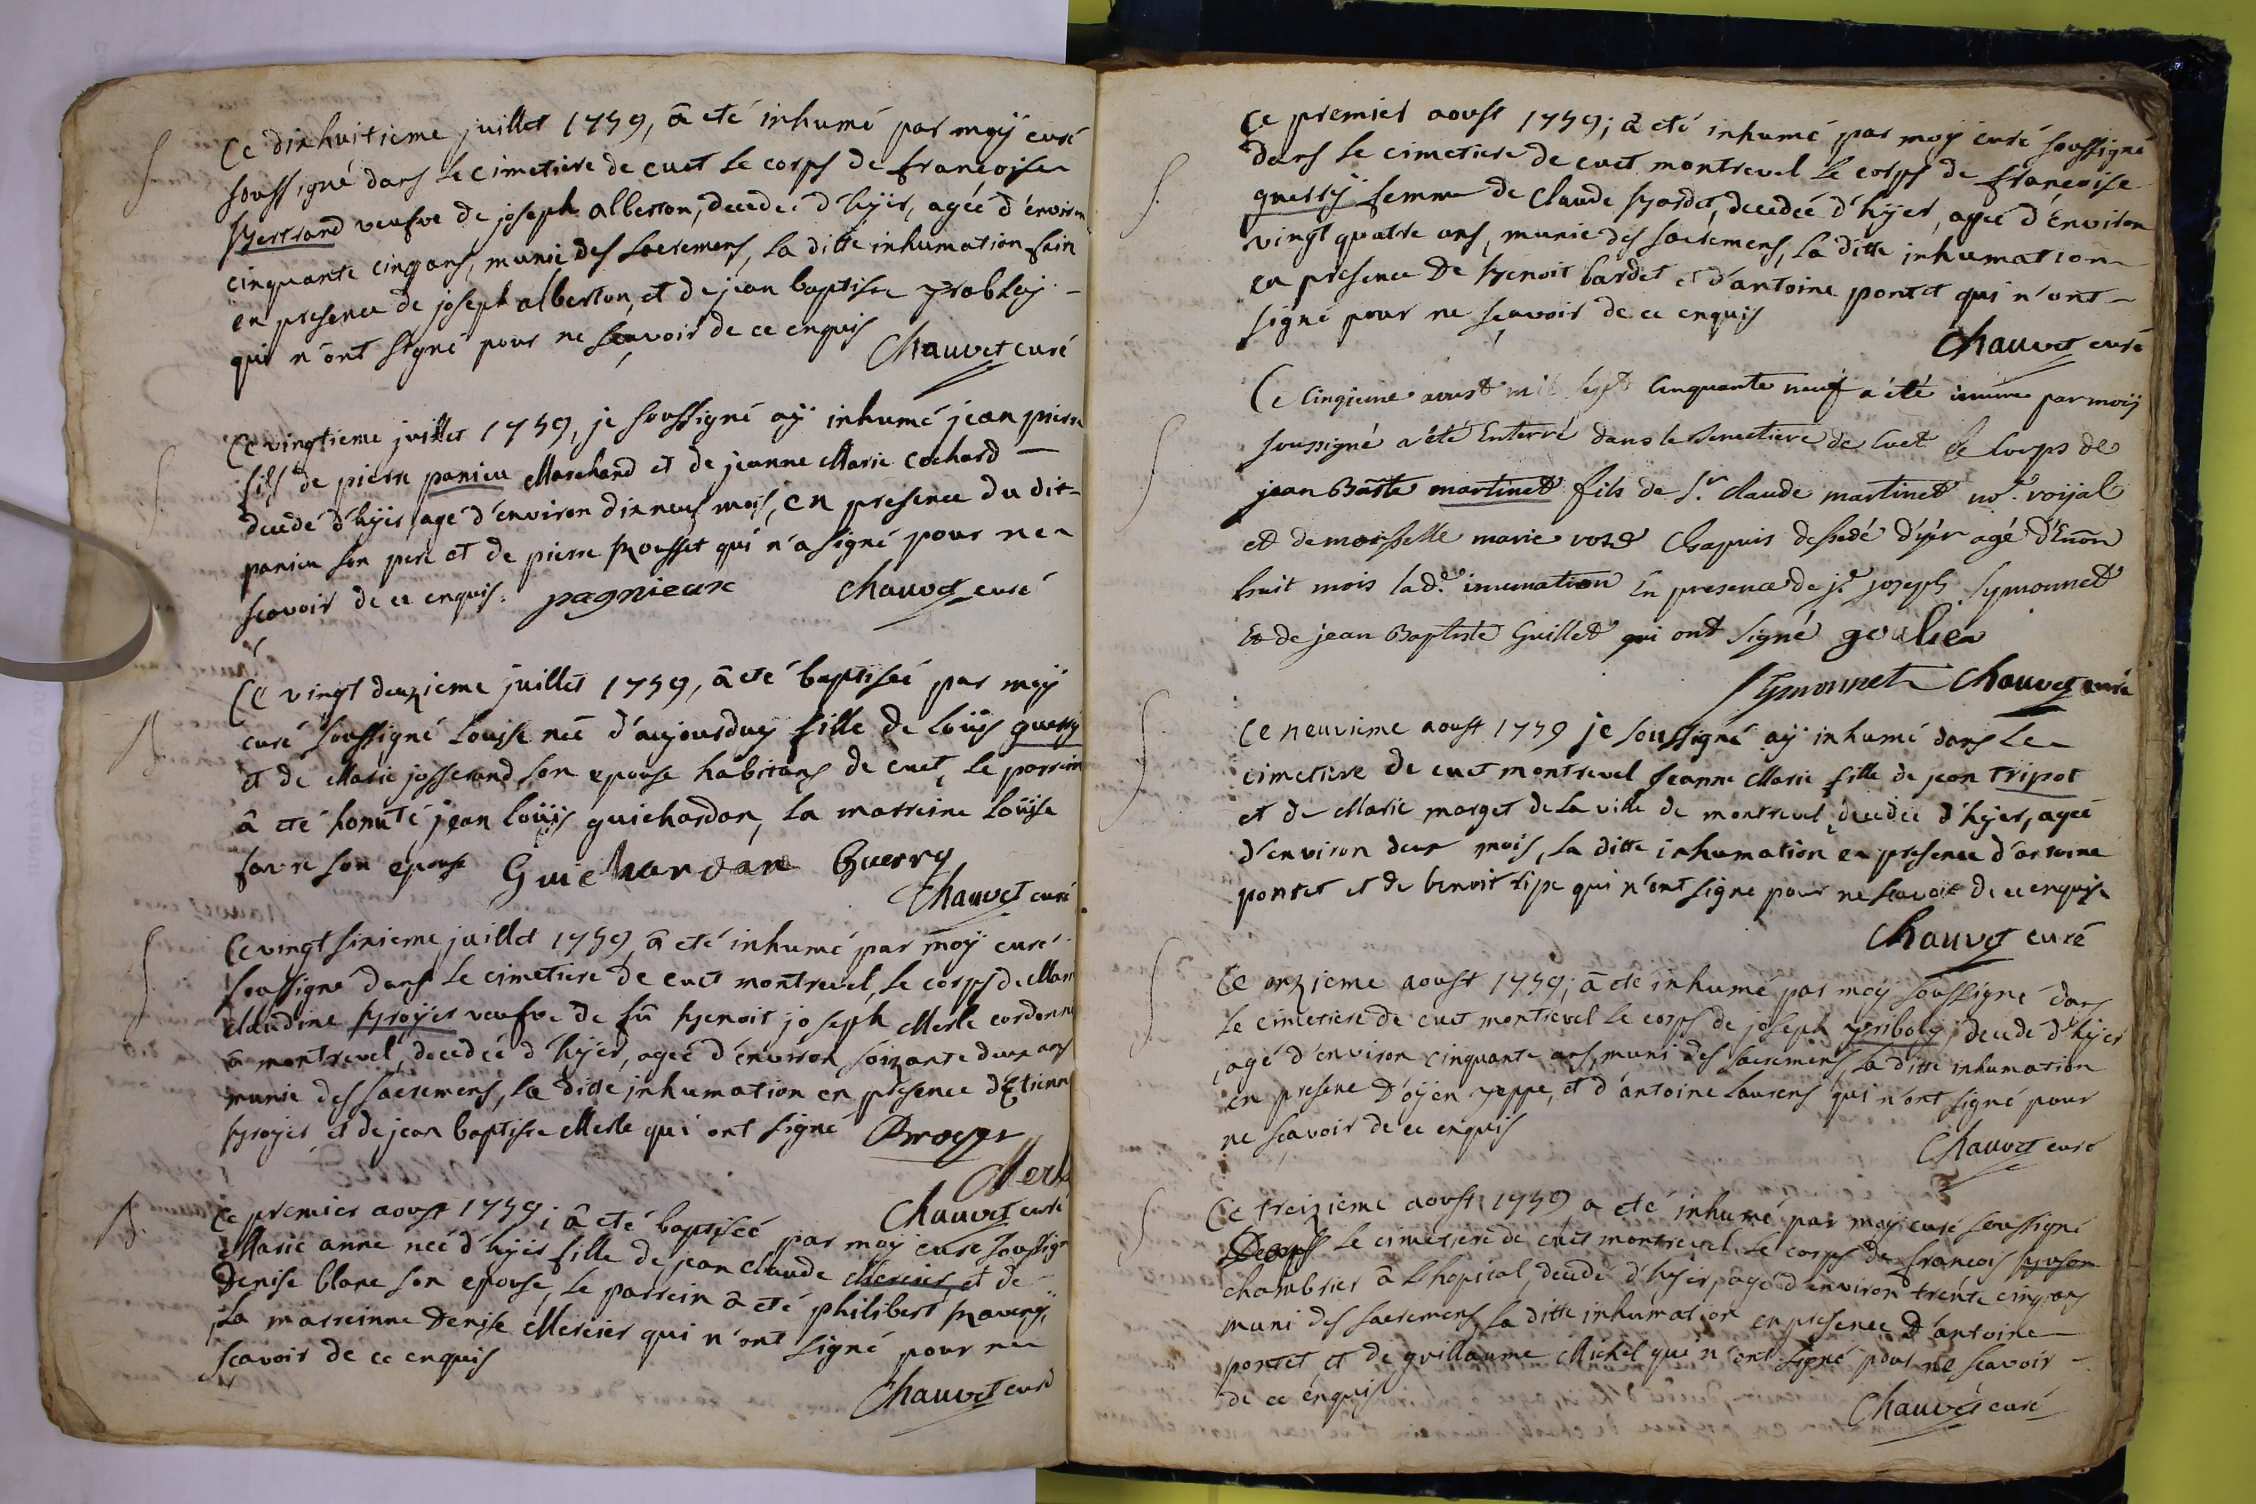 S.
Ce dixhuitieme juillet 1759, â eté inhumé par moÿ curé
soussigné dans le cimetiere de cuet le corps de françoise
Bertrand veufve de joseph alberton, decedee d'hÿer, agée d'environ
cinquante cinq ans, munie des sacremens, la ditte inhumation fain
en presence de joseph alberton, et de jean baptiste
qui n'ont signé pour ne sçavoir de ce enquis
Chauvet curé
S.
Ce vingtieme juillet 1759, je soussigné aÿ inhumé jean pierre
fils de pierre panieu Marchand et de jeanne Marie Cochard
decedé d'hÿer, agé d'environ dix neuf mois, en presence du dit
panieu son pere et de pierre Rousset qui n'a signé pour ne
scavoir de ce enquis. pagnieux Chauvet curé
B.
Ce vingt deuzieme juillet 1759, â eté baptisée par moÿ
curé soussigné Louise née d'aujourduy fille de Loüis guerry
et de Marie josserand son epouse habitans de cuet, le parrein
â eté honête jean loüis guichardan, la marreine Loüise
favre son epouse Guichardan Guerry
Chauvet curé
S.
Ce vingt sixieme juillet 1759, â eté inhumé par moÿ curé
soussigné dans le cimetiere de cuet montrevel, le corps de Marie
claudine Broyer veufve de fû Benoit joseph Merle cordonnie
â montrevel, decedée d'hÿer, agée d'environ soixante deux ans
munie des sacremens, la ditte inhumation en presence d'Etienne
Broyer et de jean baptiste Merle qui ont signé Broyer
Merle
Chauvet curé
B.
Ce premier aoust 1759, â eté baptisée par moÿ curé soussigné
Marie anne née d'hÿer fille de jean claude Mercier, et de
Denise blanc son epouse, le parrein â eté philibert Ravery,
la marreinne Denise Mercier qui n'ont signé pour ne
scavoir de ce enquis
Chauvet curé
S.
Ce premier aoust 1759, â eté inhumé par moÿ curé soussigné
dans le cimetiere de cuet montrevel le corps de françoise
guerrÿ femme de Claude Bardet, decedée d'hÿer, agée d'environ
vingt quatre ans, munie des sacremens, la ditte inhumation
en presence de Benoit bardet et d'antoine pontet qui n'ont
signé pour ne sçavoir de ce enquis
Chauvet curé
S.
Ce Cinqieme aoust mil sept Cinquante neuf a été inumé par moÿ
soussigné a été Enterré dans le semetiere de Cuet le Corps de
jean Baste martinet fils de Sr claude martinet nore roijal
et demoisselle marie roze Chapuis dessedé d'yér agé d'Enon
huit mois lade inumation En presence de je joseph Symonnet
Et de jean Baptiste Guillet qui ont signé
Symonnet Chauvet curé
S.
Ce neuvieme aoust 1759 je soussigné aÿ inhumé dans le
cimetiere de cuet montrevel Jeanne Marie fille de jean tripot
et de Marie marget de la ville de montrevel, decedée d'hÿer, agée
d'environ deux mois, la ditte inhumation en presence d'antoine
pontet et de benoit qui n'ont signé pour ne scavoir de ce enquis
Chauvet curé
S.
Ce onzieme aoust 1759, â eté inhumé par moÿ soussigné dans
le cimetiere de cuet montrevel le corps de joseph decedé d'hÿer
agé d'environ cinquante ans, muni des sacremens, la ditte inhumation
en presence d'oÿen, et d'antoine Laurens qui n'ont signé pour
ne sçavoir de ce enquis
Chauvet curé
S.
Ce treizieme aoust 1759 a eté inhumé par moÿ curé soussigné
le cimetiere de cuet montrevel le corps de francois
chambrier â L'hopital, decedé d'hÿer, agé d'environ trente cinq ans
muni des sacremens la ditte inhumation en presence d'antoine
pontet et de guillaume Michel qui n'ont signé pour ne scavoir
de ce enquis
Chauvet curé